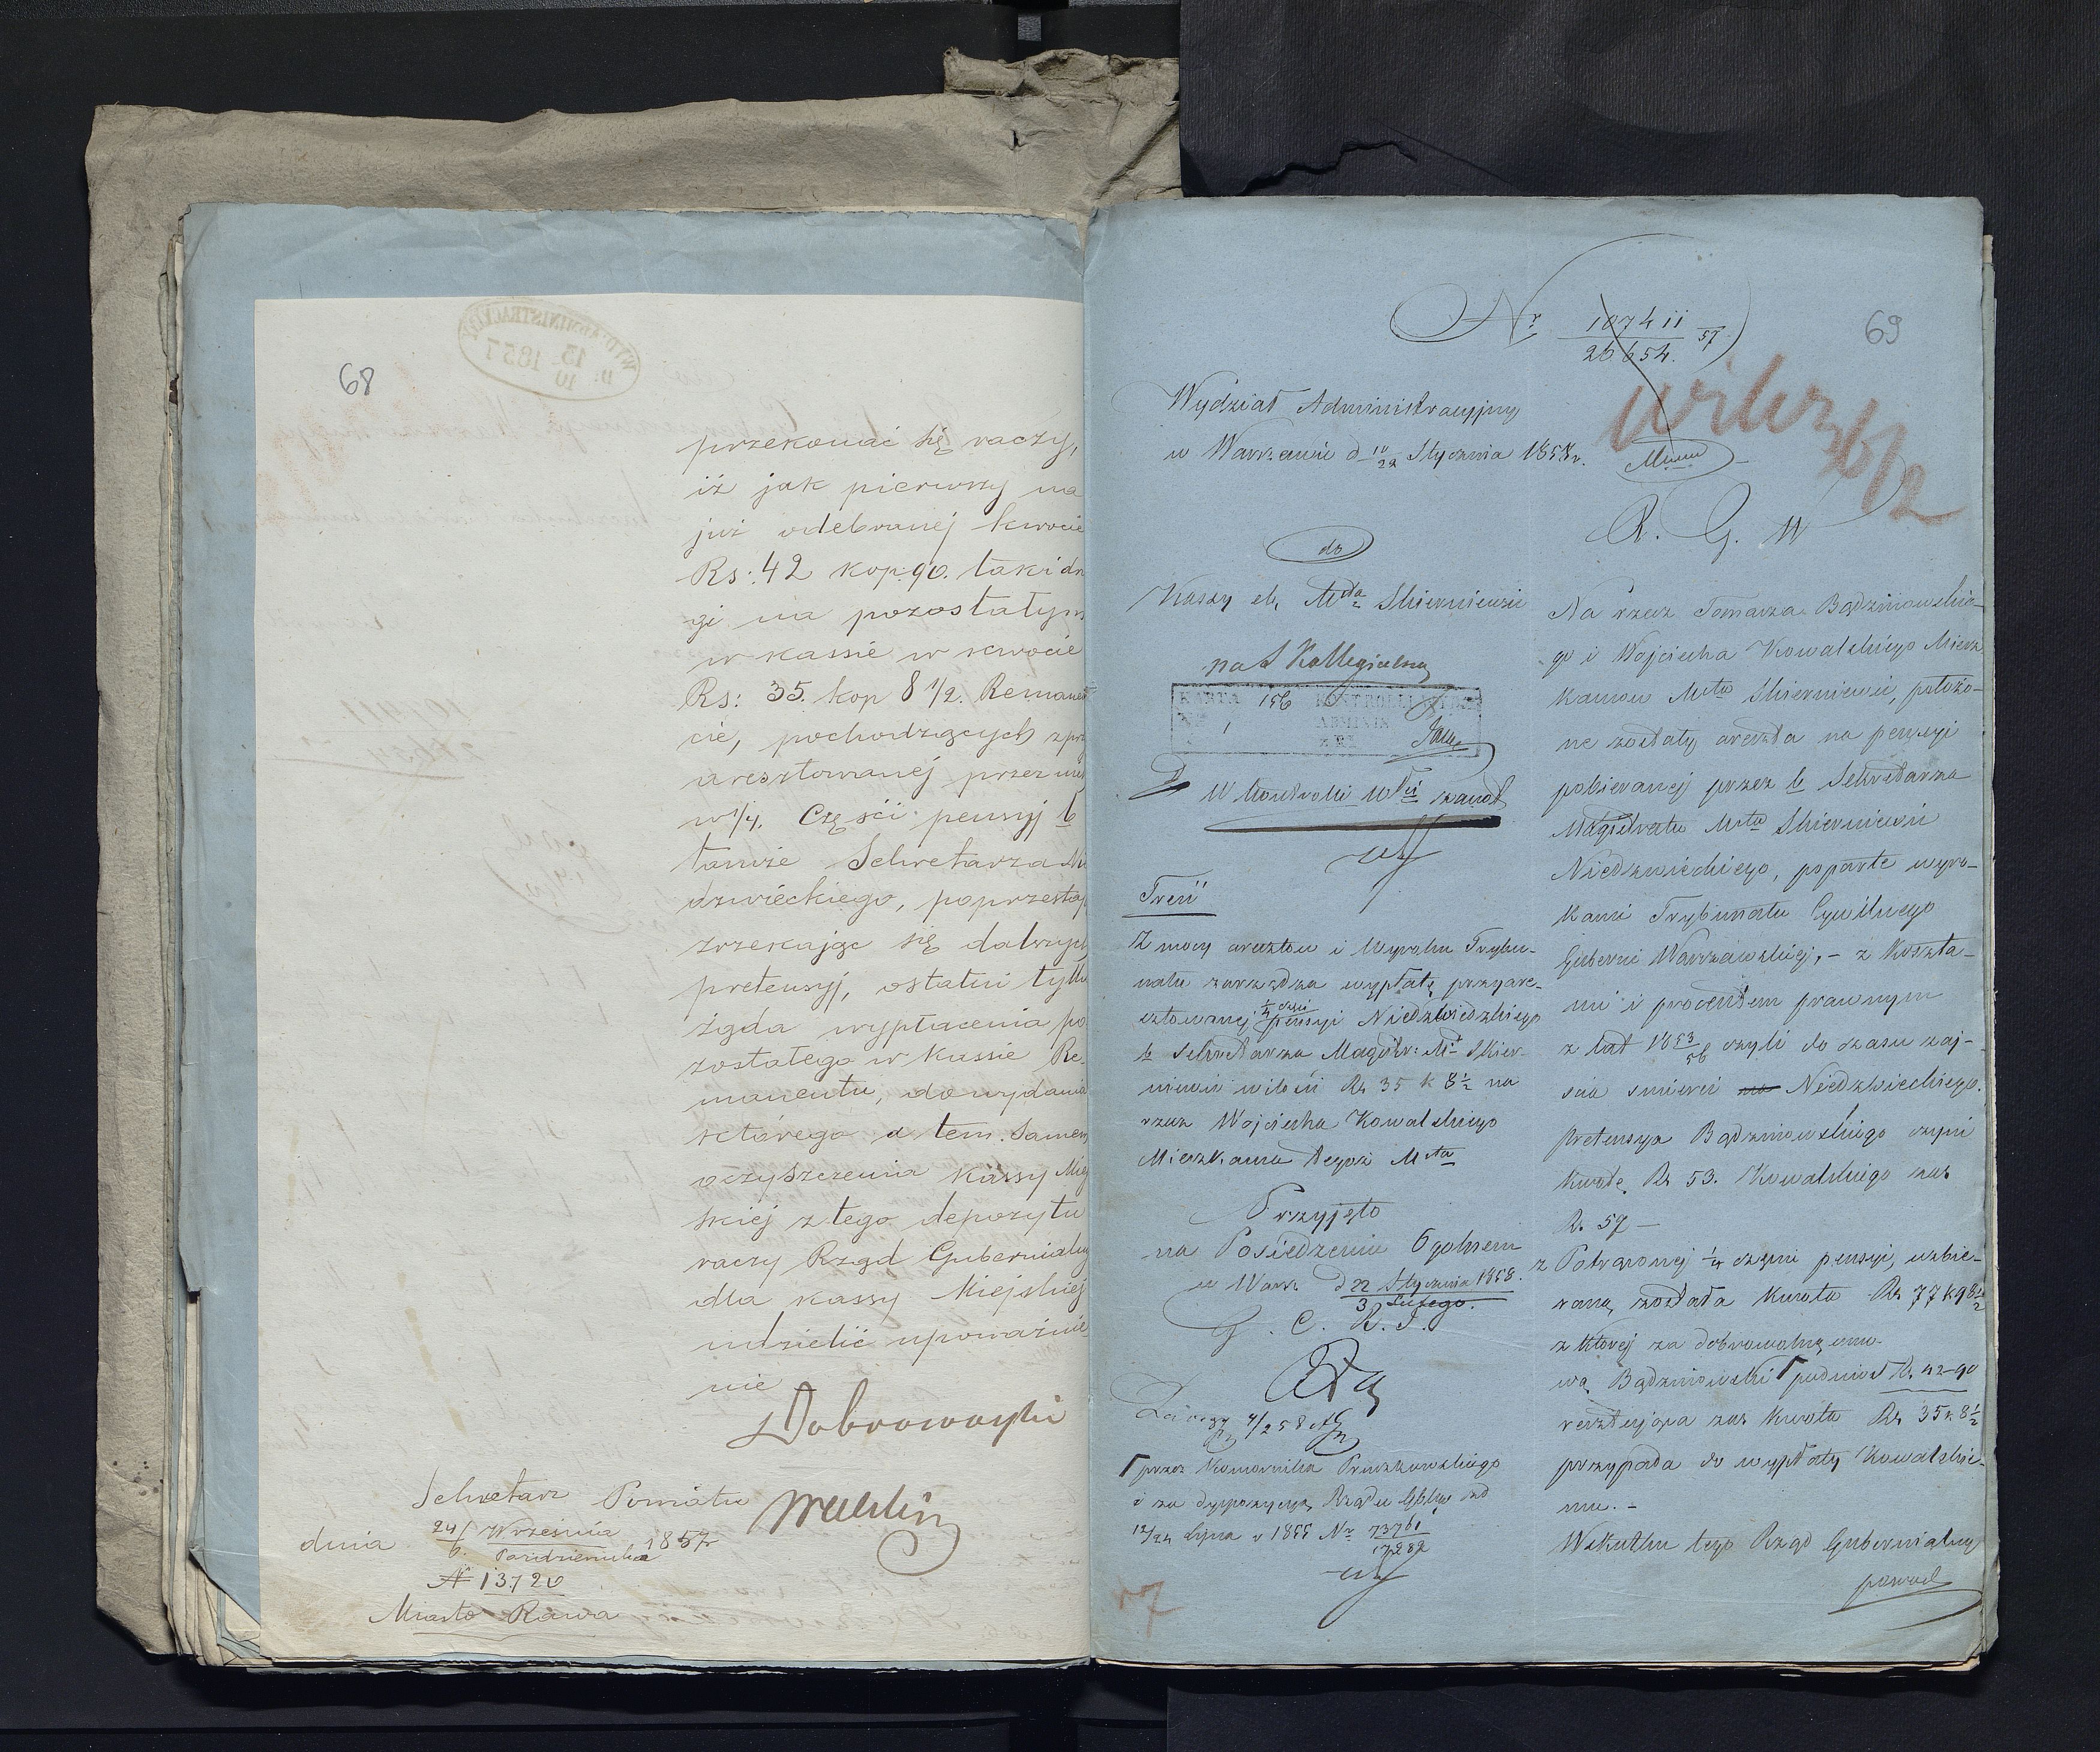 68
przekonać się raczy,
iż jak pierwszy na
już odebranej kwocie
Rs: 42 kop. 90. taki dru
gi na pozostałym
w kassie w kwocie
Rs: 35. kop 8 1/2. Remanen
cie, pochodzących z prz
aresztowanej przez nich
w 1/4. Części pensyj b
tamże Sekretarza Nie
dzwieckiego, poprzestaje
zrzekając się dalszych
pretensyj, ostatni tylko
żąda wypłacenia po
zostałego w kassie Re-
manentu, do wydania
którego a tem samem
oczyszczenia kassy Miej
skiej z tego depozytu
raczy Rząd Gubernialny
dla kassy Miejskiej
udzielić upoważnie
nie
Dobrowolski
Sekretarz Powiatu
dnia 24/6. Września / Października 1857 r
N 13720
Miasto Rawa
69
Nr 107411 / 26654. 57
Wydział Administracyjny
w Warszawie d 10/22 Stycznia 1858 r.
R. G. W
do
Kassy ek. Mta Skierniewic
na S Kollegialną
KARTA 156 KONTROLLI
1
W Kontrolli
Treść
Z mocy aresztów i Wyroku Trybu-
nału zarządza wypłatę przyare-
sztowanej 1/4 części pensyi Niedzwiedzkiego
b Sekretarza Magistr: Mta Skier-
niewic w ilości Rs 35 k 8 1/2 na
rzecz Wojciecha Kowalskiego
Mieszkańca tegoż Mta
Przyjęto
na Posiedzeniu Ogólnem
w Warsz. d 22 Stycznia 1858. / 3 Lutego.
G. C. R. J.
przez Komornika Pruszkowskiego
i za dyspozycyą Rządu Gblgo od
12/24 Lipca r 1855 Nr 73761 / 17282
Na rzecz Tomasza Bądzinowskie-
go i Wojciecha Kowalskiego Miesz
kańców Mta Skierniewic, położo-
ne zostały areszta na pensyi
pobieranej przez b Sekretarza
Magistratu Mta Skierniewic
Niedzwieckiego, poparte wyro-
kami Trybunału Cywilnego
Gubernii Warszawskiej, - z Koszta-
mi i procentem prawnym
z lat 1853/56 czyli do czasu zaj-
ścia śmierci Niedzwieckiego.
Pretensya Bądzinowskiego czyni
kwotę Rs 53. Kowalskiego zaś
Rs 59 -
z Potrąconej 1/4 części pensyi, uzbie-
raną została kwota Rs 77 k 98 1/2
z której za dobrowolną umo-
wą Bądzinowski podniósł Rs. 42-90
resztująca zaś kwota Rs 35 k 8 1/2
przypada do wypłaty Kowalskie-
mu. -
W skutku tego Rząd Gubernialny